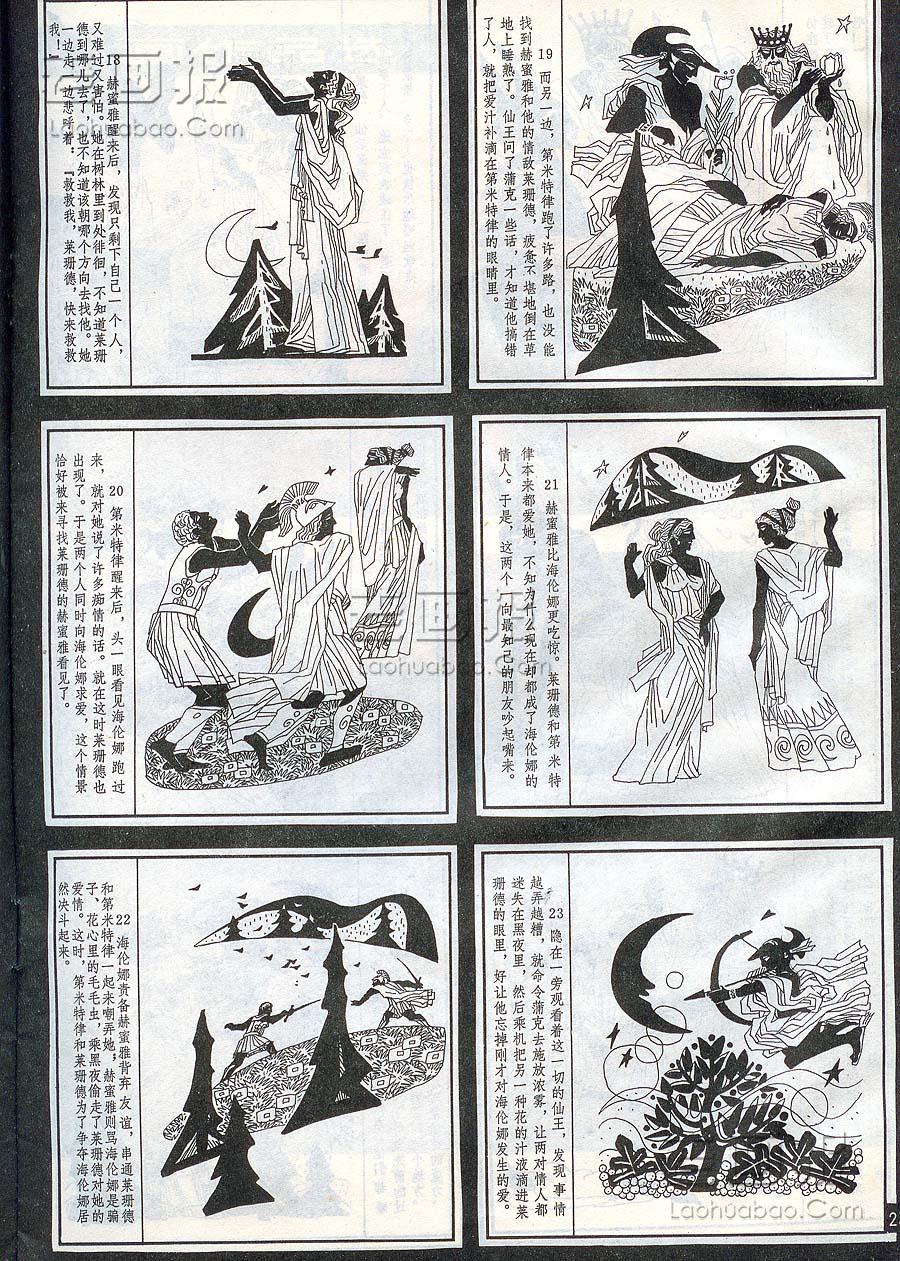 18 赫蜜雅醒来后，发现只剩下自己一个人，
又难过又害怕。她在树林里到处徘徊，不知道莱珊
德到哪儿去了，也不知道该朝哪个方向去找他。她
一边走一边悲呼着：『救救我，莱珊德，快来救救
我！
19 而另一边，第米特律跑了许多路，也没能
找到赫蜜雅和他的情敌莱珊德，疲惫不堪地倒在草
地上睡熟了。仙王问了蒲克一些话，才知道他搞错
了人，就把爱汁补滴在第米特律的眼睛里。
20 第米特律醒来后，头一眼看见海伦娜跑过
来，就对她说了许多痴情的话。就在这时莱珊德也
出现了。于是两个人同时向海伦娜求爱，这个情景
恰好被来寻找莱珊德的赫蜜雅看见了。
21 赫蜜雅比海伦娜更吃惊。莱珊德和第米特
律本来都爱她，不知为什么现在却都成了海伦娜的
情人。于是，这两个一向最知己的朋友吵起嘴来。
22 海伦娜责备赫蜜雅背弃友谊，串通莱珊德
和第米特律一起来嘲弄她；赫蜜雅则骂海伦娜是骗
子、花心里的毛毛虫，乘黑夜偷走了莱珊德对她的
爱情。这时，第米特律和莱珊德为了争夺海伦娜居
然决斗起来。
23 隐在一旁观看着这一切的仙王，发现事情
越弄越糟，就命令蒲克去施放浓雾，让两对情人都
迷失在黑夜里，然后乘机把另一种花的汁液滴进莱
珊德的眼里，好让他忘掉刚才对海伦娜发生的爱。
老画报
Laohuabao.Com
老画报
Laohuabao.Com
Laohuabao.Com